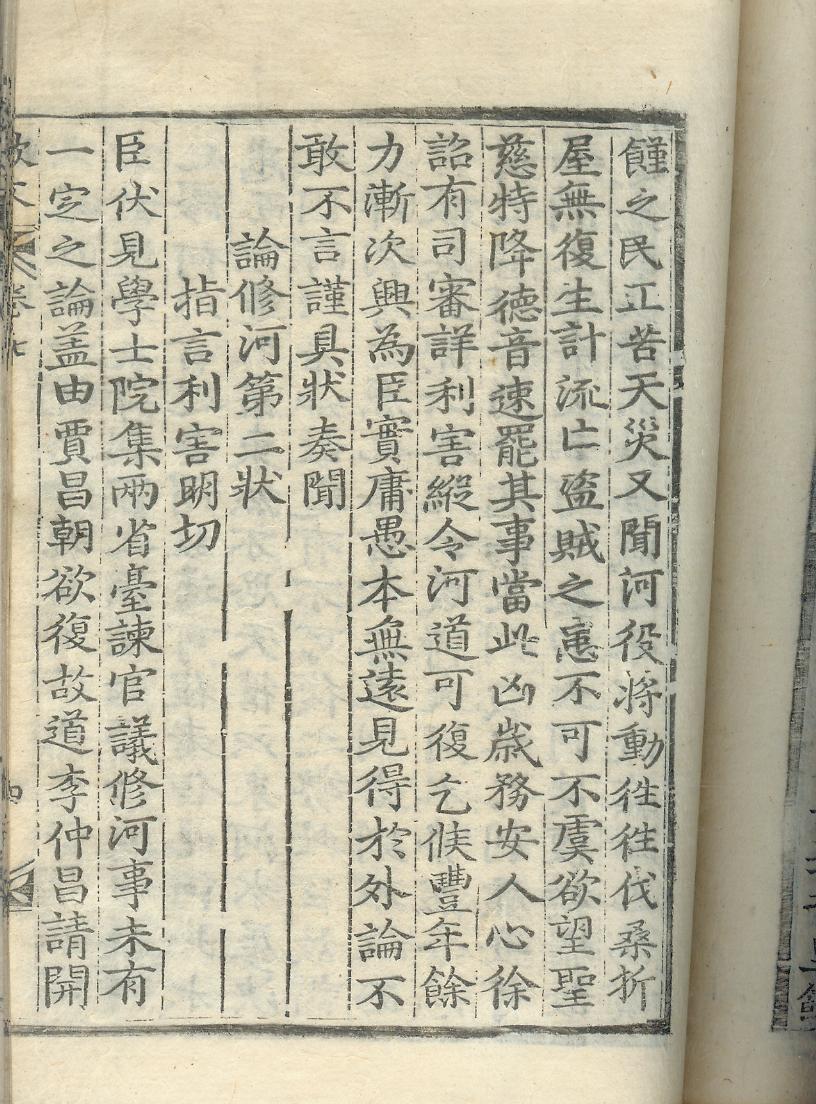 饉之民正苦天災又聞河役將動徃徃伐桑折
屋無復生計流亡盜賊之患不可不虞欲望聖
慈特降德音速罷其事當此凶歲務安人心徐
詔有司審詳利害縱令河道可復乞候豐年餘
力漸次興為臣實庸愚本無遠見得於外論不
敢不言謹具狀奏聞
論修河第二狀
指言利害明切
臣伏見學士院集兩省臺諫官議修河事未有
一定之論盖由賈昌朝欲復故道李仲昌請開